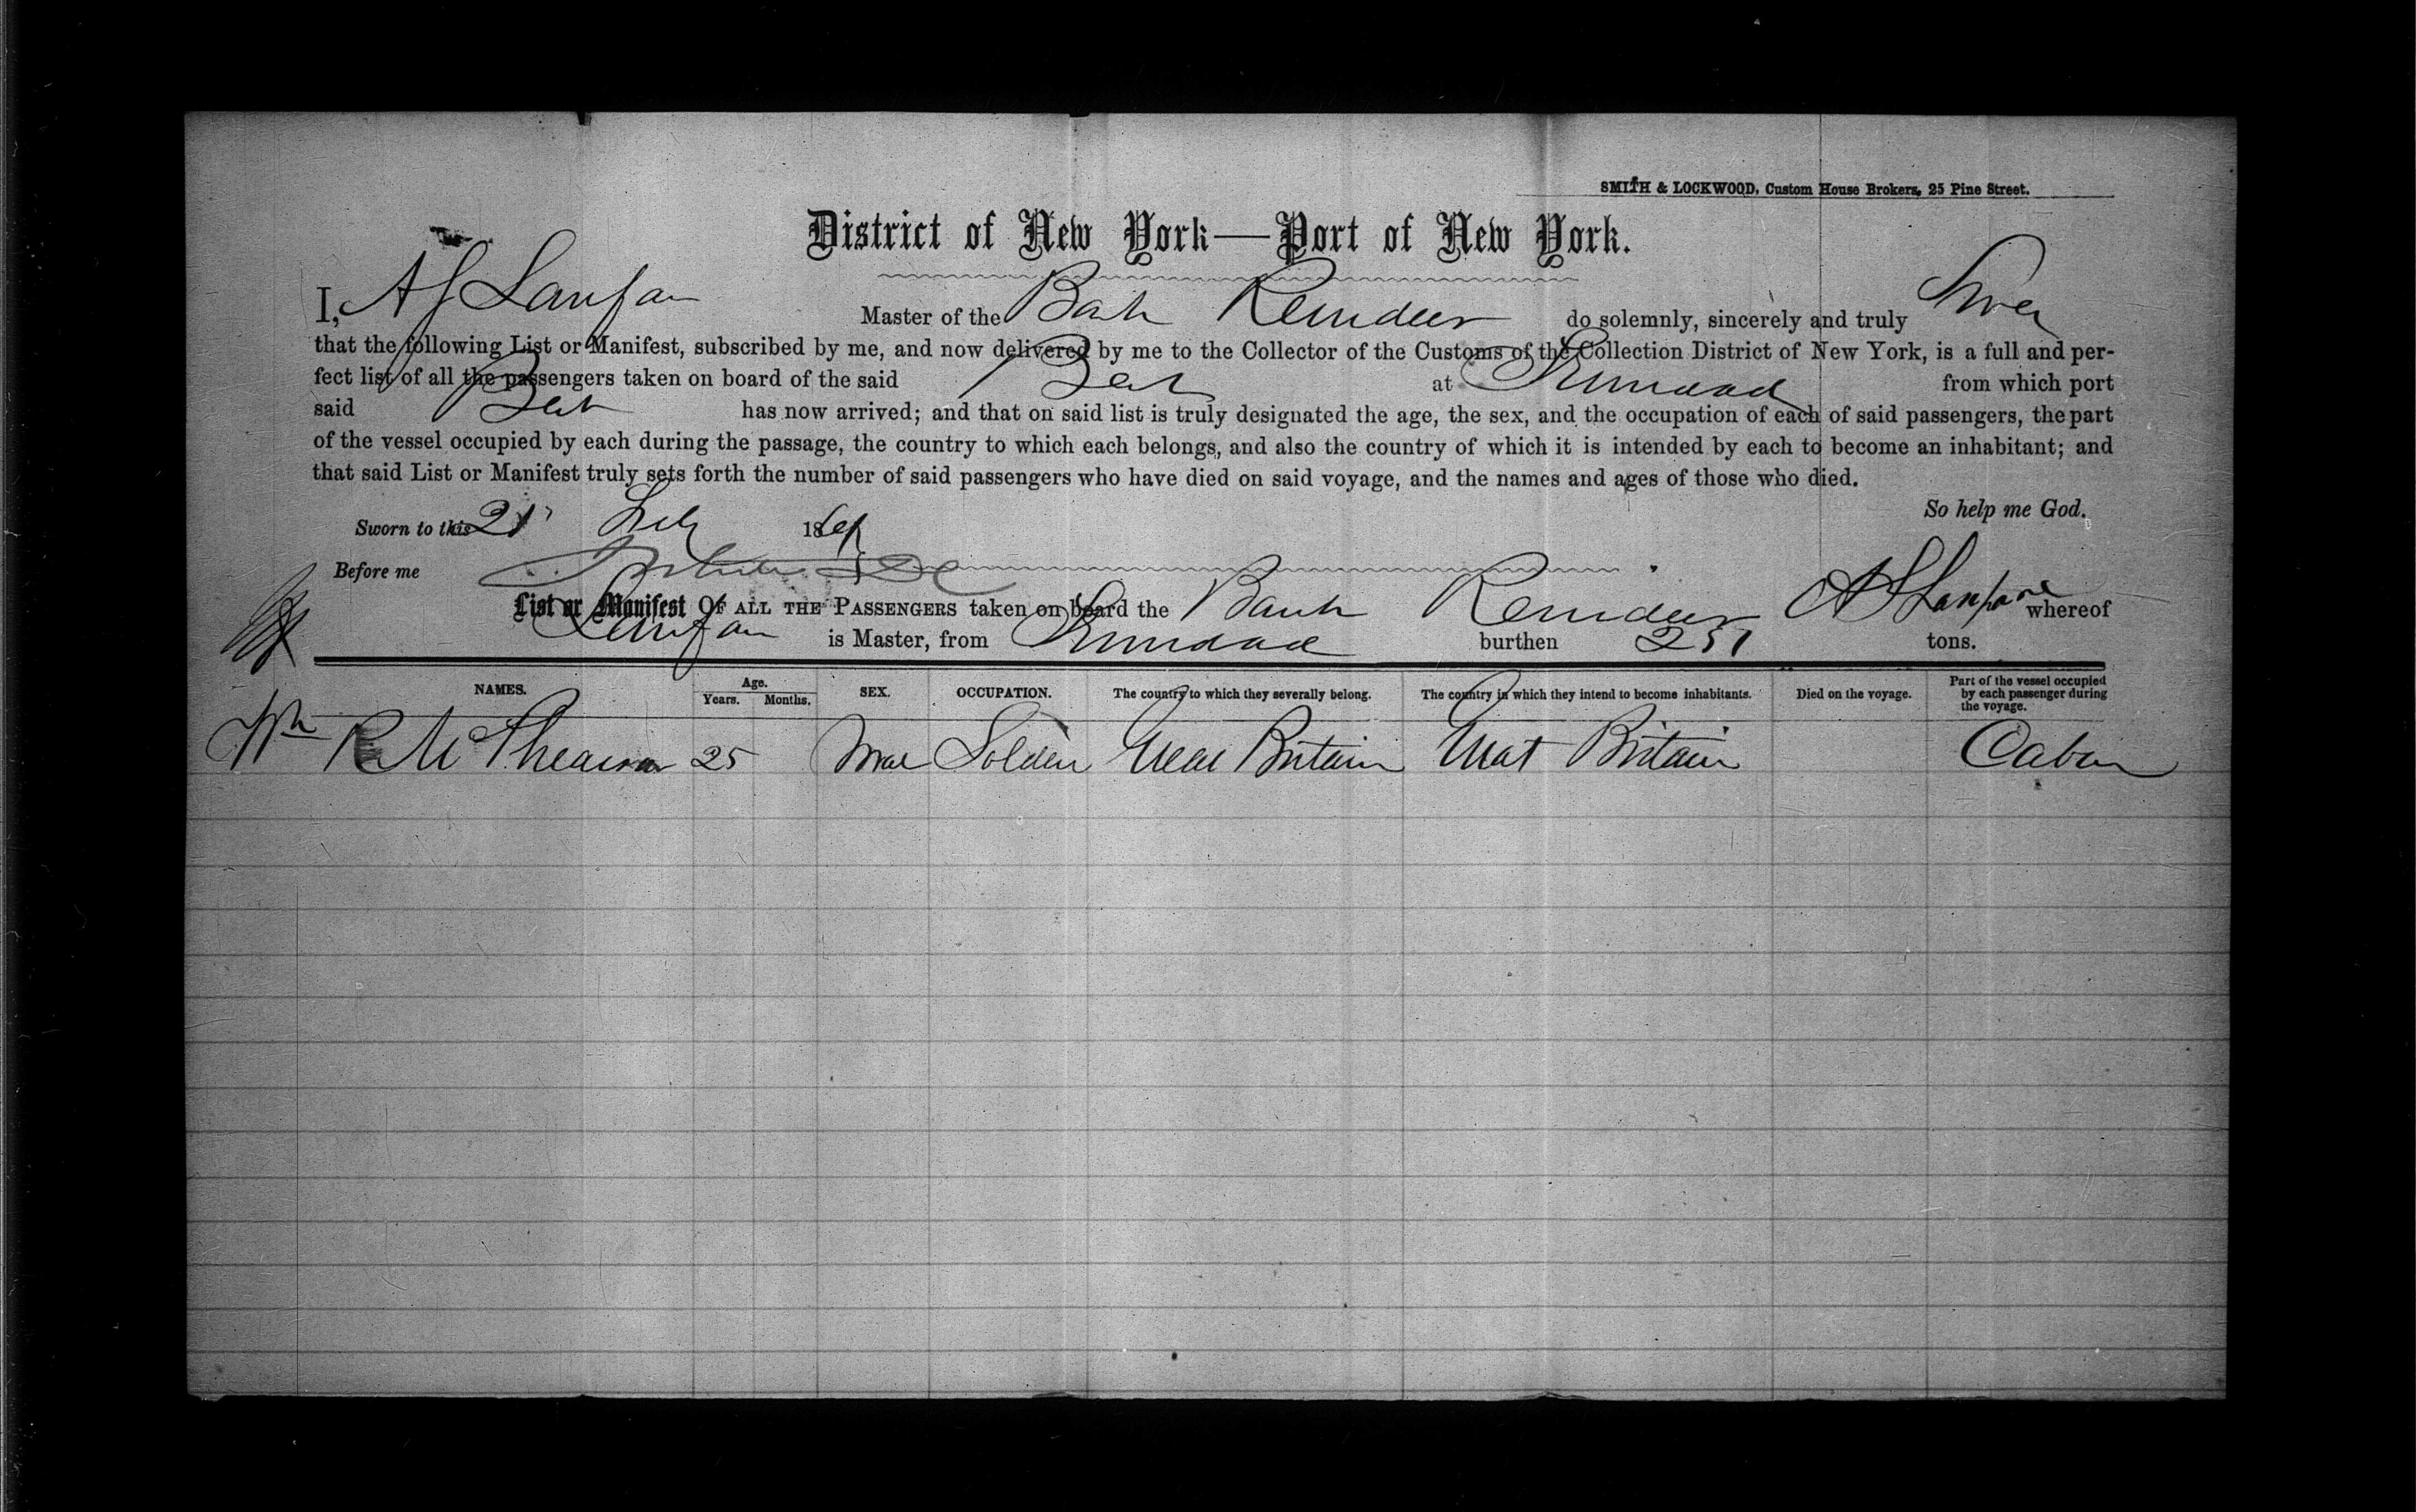 SMITH & LOCKWOOD, Custom House Brokers, 25 Pine Street.
District of New York—Port of New York.
I, A Lanfan Master of the Bark Reindeer do solemnly, sincerely and truly Swear
that the following List or Manifest, subscribed by me, and now delivered by me to the Collector of the Customs of the Collection District of New York, is a full and per-
fect list of all the passengers taken on board of the said Bark at Trinidad from which port
said Bark has now arrived; and that on said list is truly designated the age, the sex, and the occupation of each of said passengers, the part
of the vessel occupied by each during the passage, the country to which each belongs, and also the country of which it is intended by each to become an inhabitant; and
that said List or Manifest truly sets forth the number of said passengers who have died on said voyage, and the names and ages of those who died.
So help me God.
Sworn to this 21 186
Before me
List or Manifest OF ALL THE PASSENGERS taken on board the Bark Reindeer whereof
Lanfan is Master, from Trinidad burthen 251 tons.
NAMES. Age. Years. Months. SEX. OCCUPATION. The country to which they severally belong. The country in which they intend to become inhabitants. Died on the voyage. Part of the vessel occupied by each passenger during the voyage.
Wm R 25 Male Soldier Great Britain Great Britain Cabin